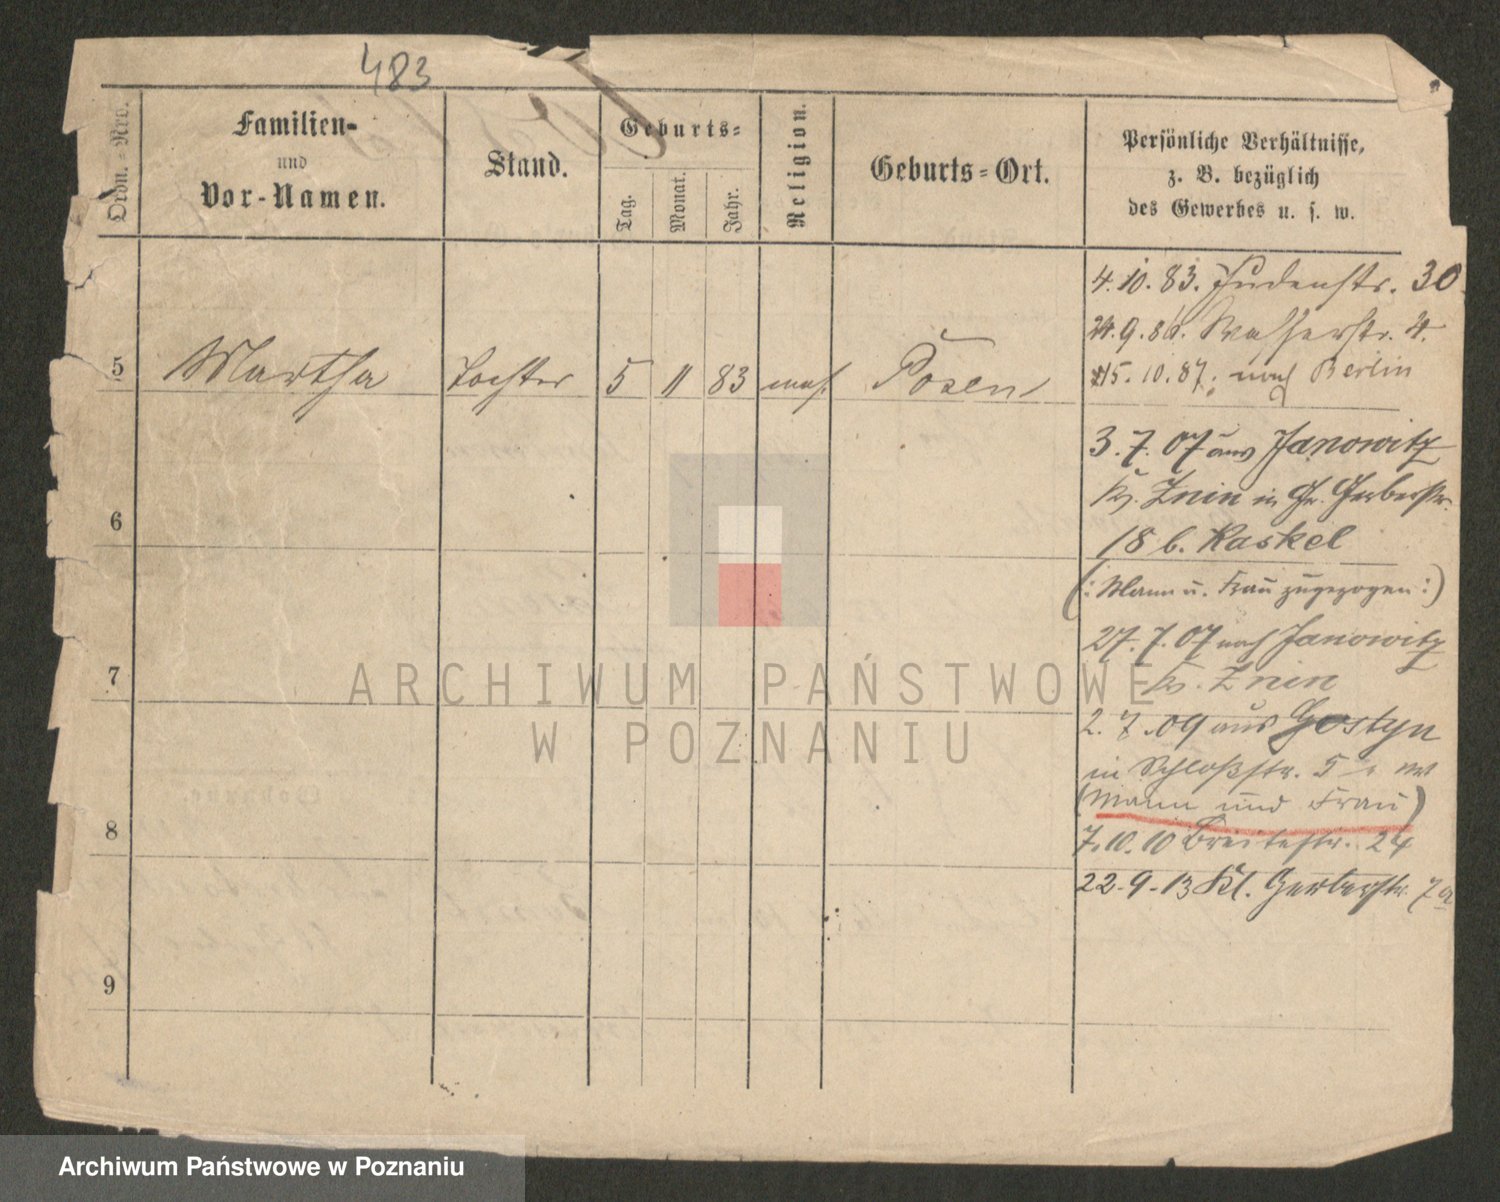 483
Ordn.-Nro.
Familien-
und
Vor-Namen.
Stand.
Geburts-
Tag.
Monat.
Jahr.
Religion.
Geburts-Ort.
Persönliche Verhältnisse,
z. B. bezüglich
des Gewerbes u. s. w.
4.10.83. Judenstr. 30
24.9.86. Wasserstr. 4.
5 Martha Tochter 5 11 83 mos. Posen
15.10.87. nach Berlin
3.7.07 aus Janowitz
Kr. Znin in Gr. Gerberstr.
6
18 b. Kaskel
(: Mann u. Frau zugezogen :)
27.7.07 nach Janowitz
7
Kr. Znin
2.7.09 aus Gostyn
in Schloßstr. 5
(Mann und Frau)
8
7.10.10 Breitestr. 24
22-9-13 Kl. Gerberstr. 7a
9
ARCHIWUM PAŃSTWOWE
W POZNANIU
Archiwum Państwowe w Poznaniu